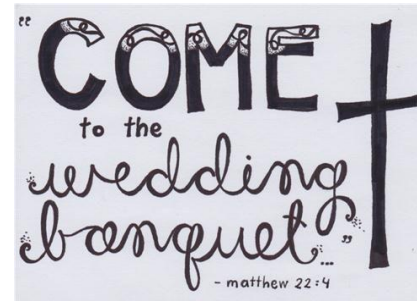 "COME
to the
wedding
banquet..."
- matthew 22:4